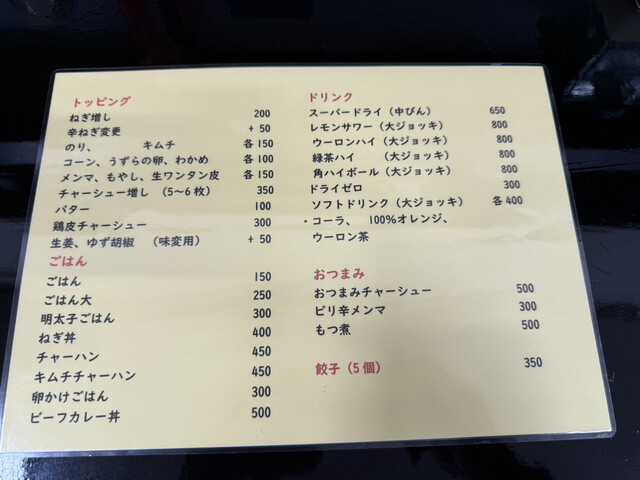 トッピング
ねぎ増し 200
辛ねぎ変更 + 50
のり、 キムチ 各 150
コーン、うずらの卵、わかめ 各 100
メンマ、もやし、生ワンタン皮 各 150
チャーシュー増し （5〜6枚） 350
バター 100
鶏皮チャーシュー 300
生姜、ゆず胡椒 （味変用） + 50
ごはん
ごはん 150
ごはん大 250
明太子ごはん 300
ねぎ丼 400
チャーハン 450
キムチチャーハン 450
卵かけごはん 300
ビーフカレー丼 500
ドリンク
スーパードライ（中びん） 650
レモンサワー（大ジョッキ） 800
ウーロンハイ （大ジョッキ） 800
緑茶ハイ （大ジョッキ） 800
角ハイボール（大ジョッキ） 800
ドライゼロ 300
ソフトドリンク（大ジョッキ） 各 400
・コーラ、 100％オレンジ、
ウーロン茶
おつまみ
おつまみチャーシュー 500
ピリ辛メンマ 300
もつ煮 500
餃子（5個） 350